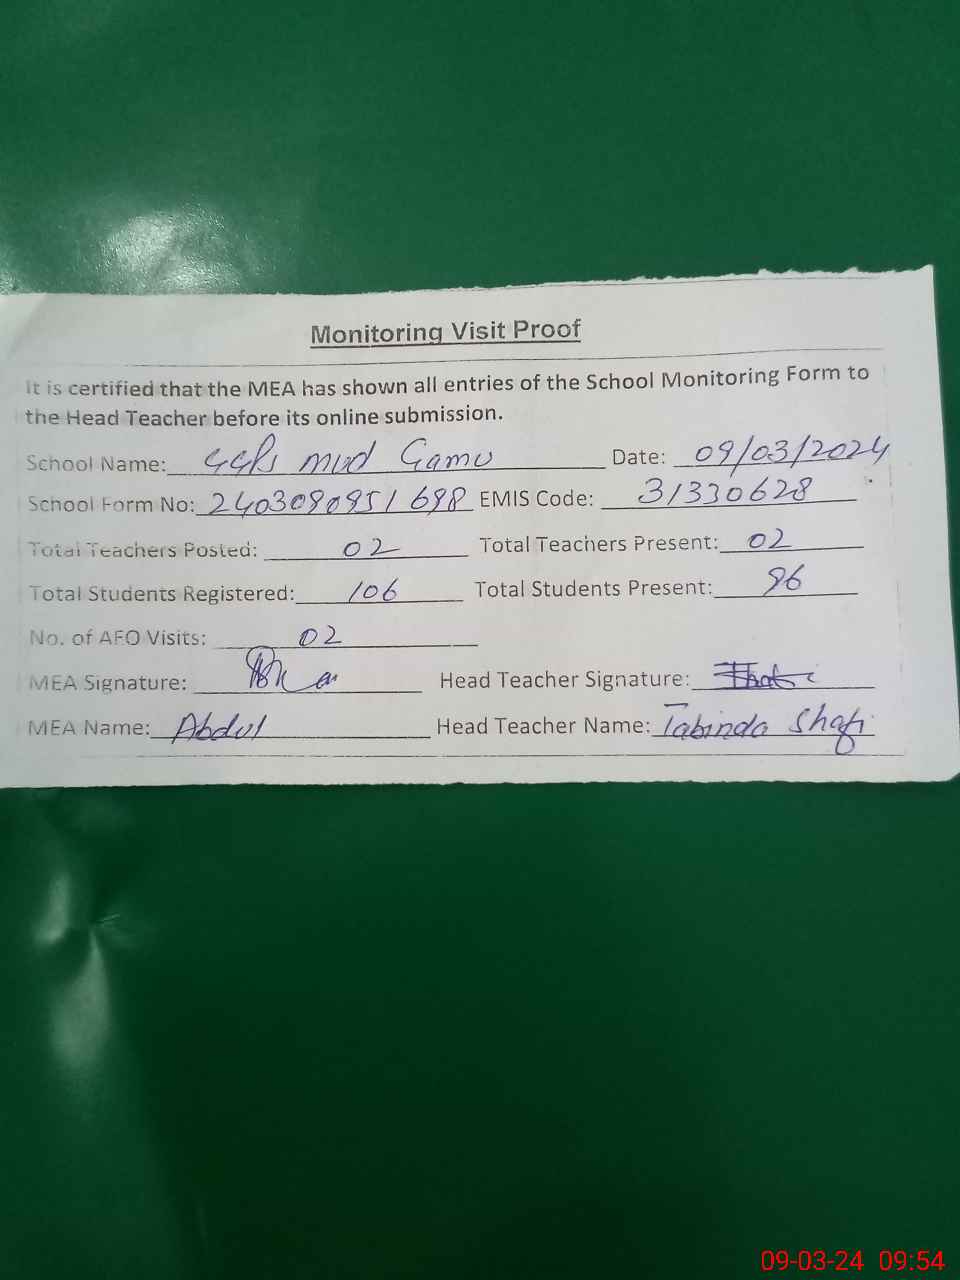 Monitoring Visit Proof
It is certified that the MEA has shown all entries of the School Monitoring Form to
the Head Teacher before its online submission.
School Name: GGPS Mud Gamu Date: 09/03/2024
School Form No: EMIS Code: 31330628
Total Teachers Posted: 02 Total Teachers Present: 02
Total Students Registered: 106 Total Students Present: 96
No. of AEO Visits: 02
MEA Signature: Head Teacher Signature:
MEA Name: Abdul Head Teacher Name: Tabinda Shafi
09-03-24 09:54